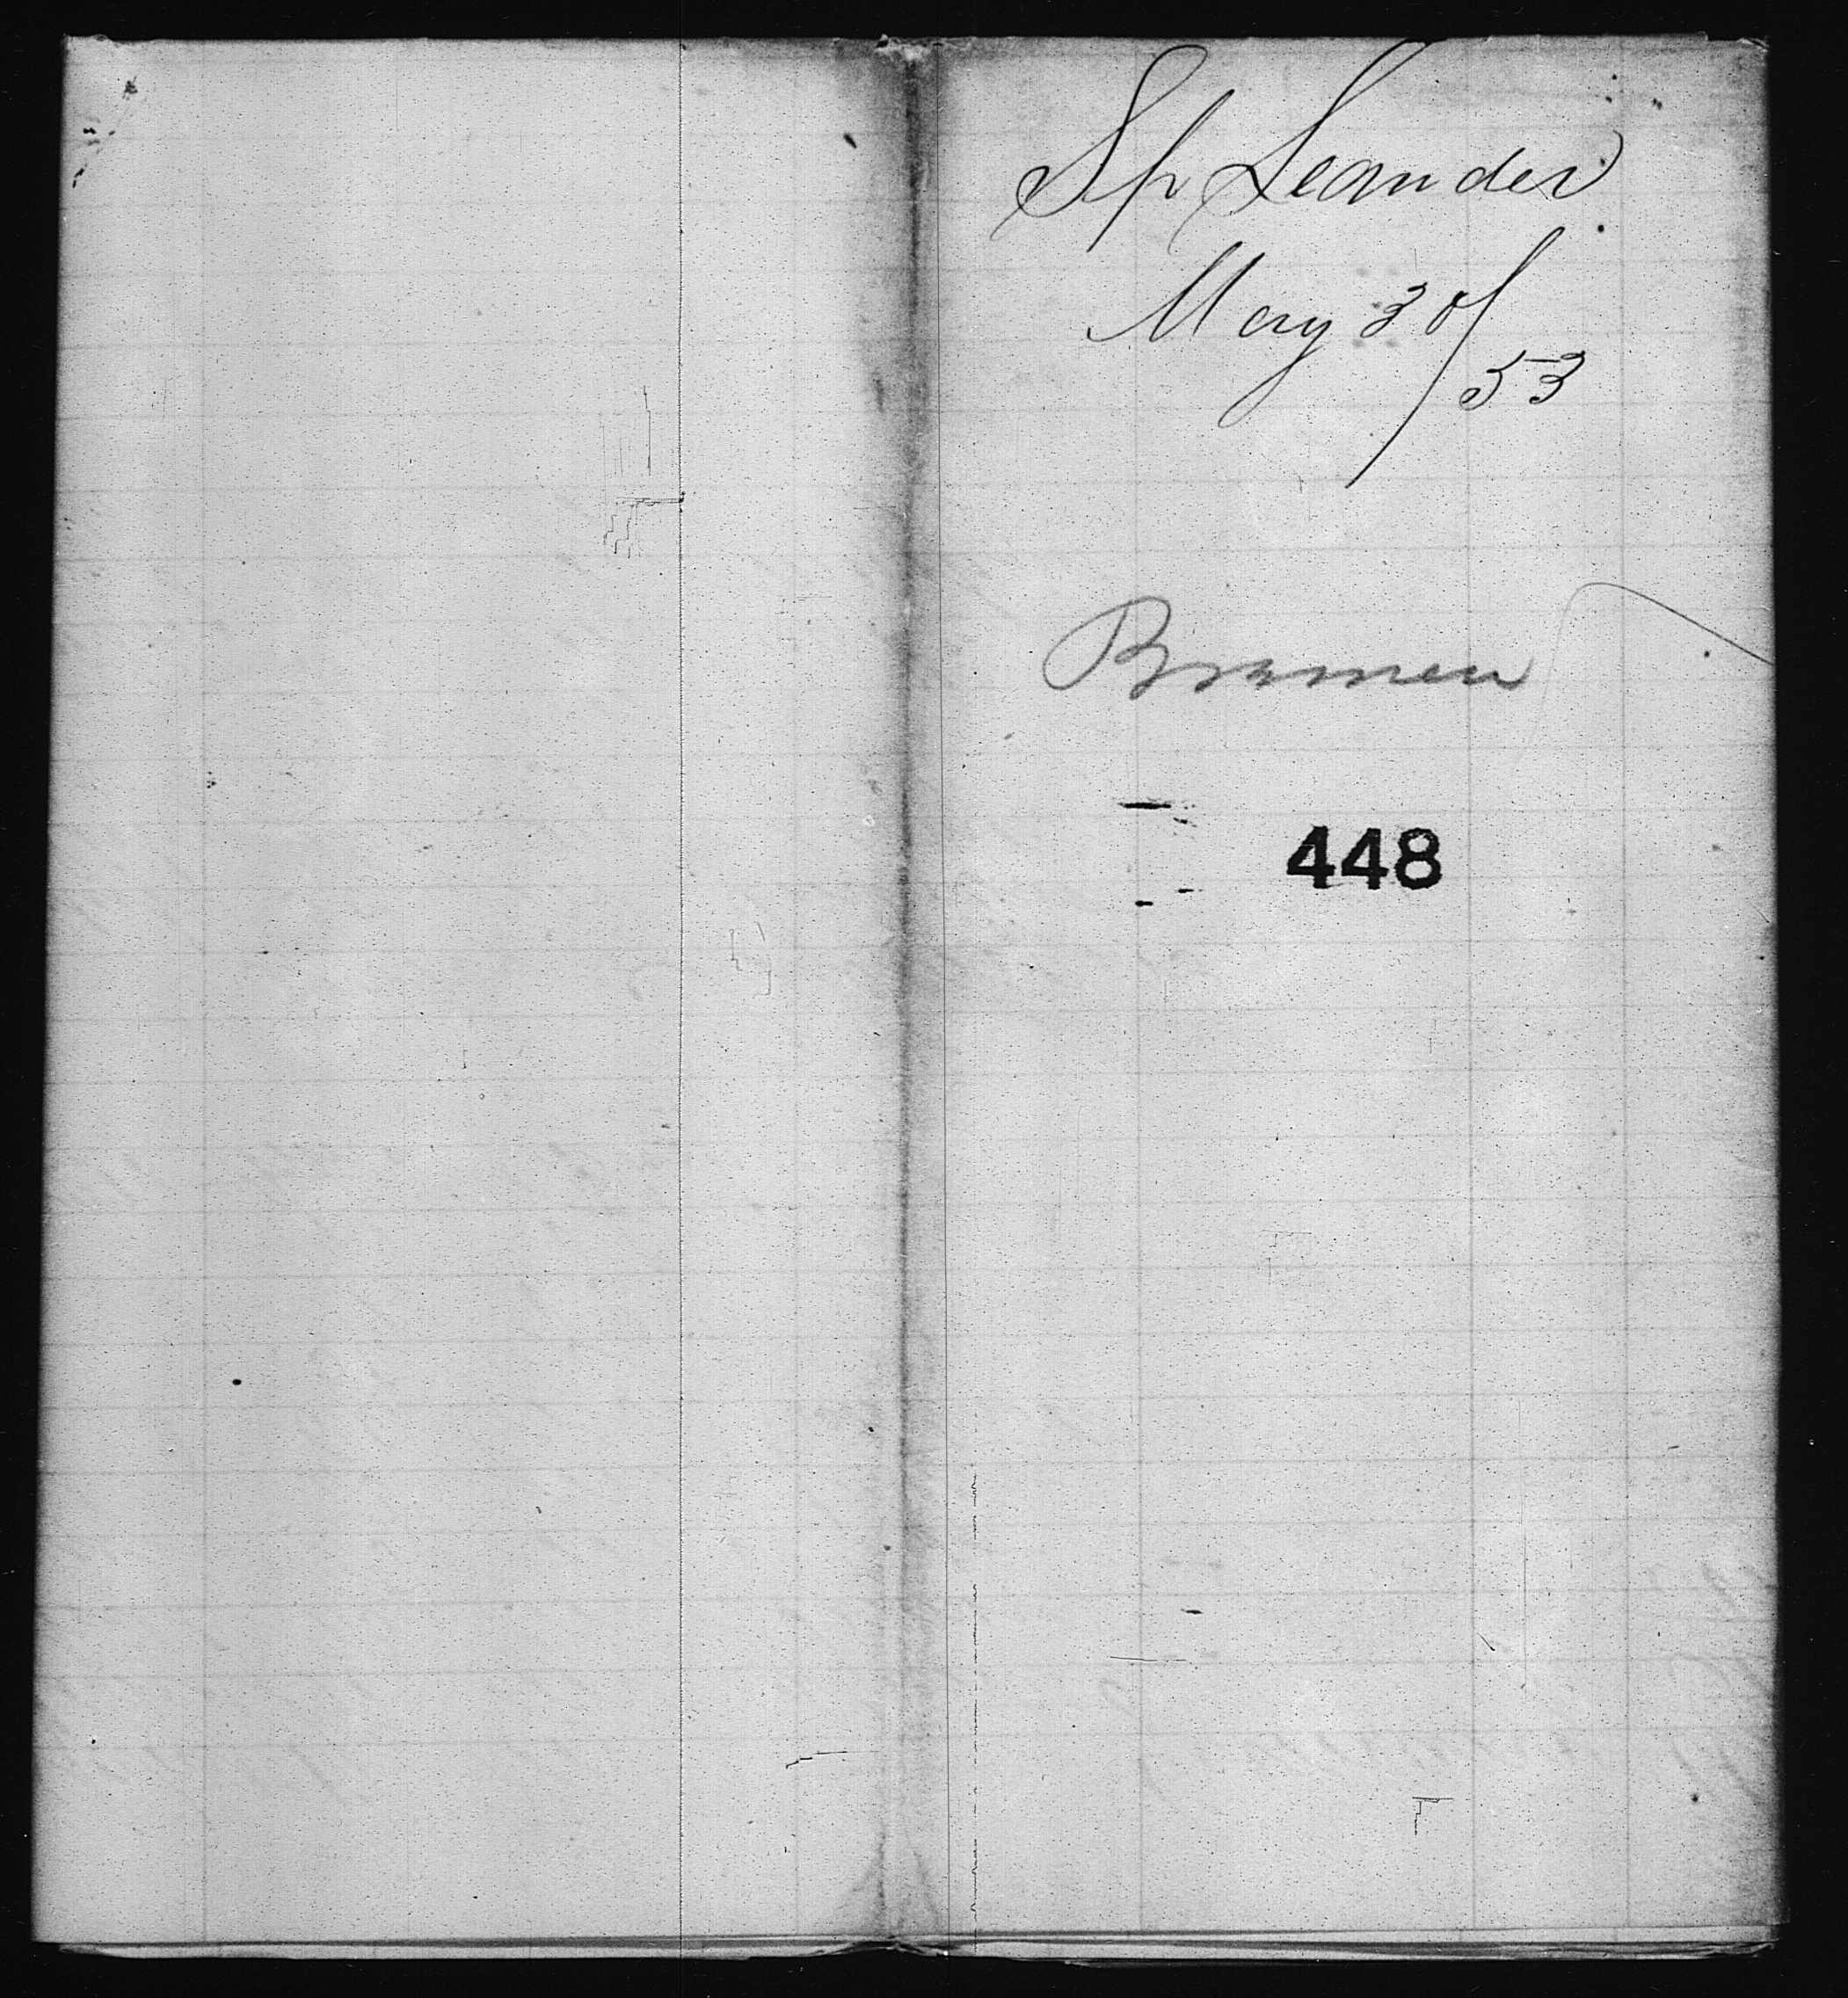 Sh Leander
May 3d
53
Bremen
448